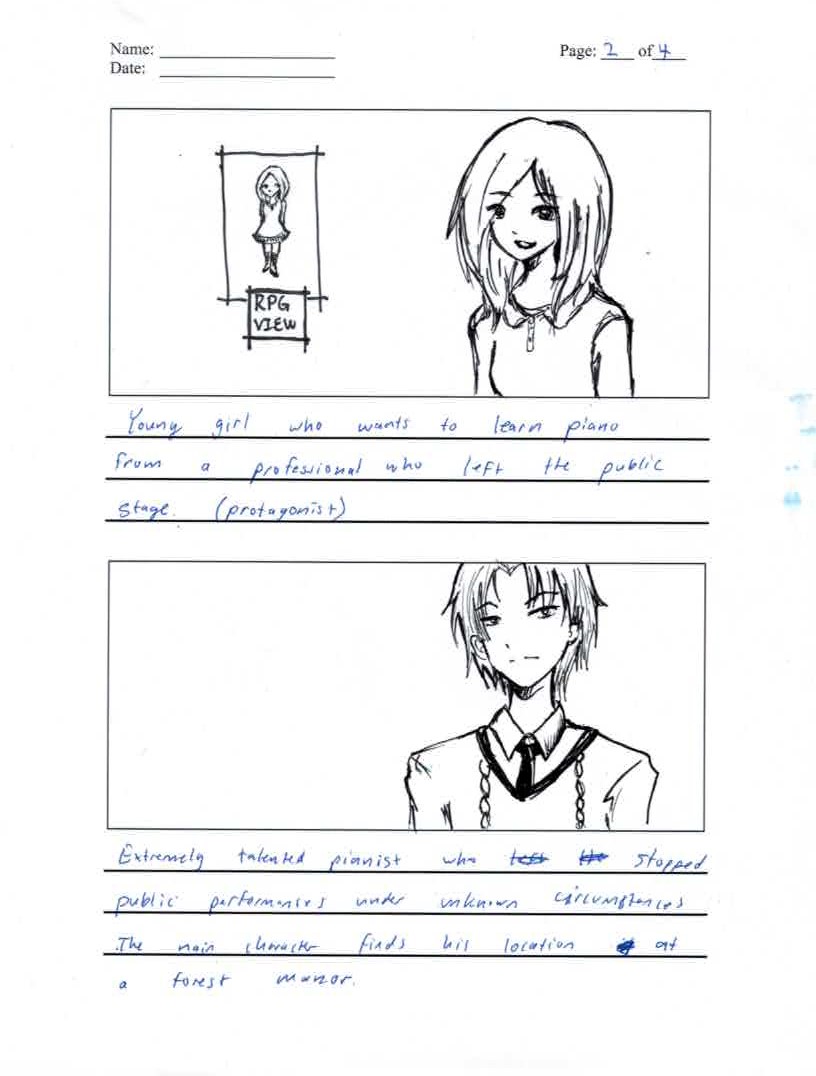 Name:
Page: 2 of 4
Date:
RPG
VIEW
Young girl who wants to learn piano
from a professional who left the public
stage. (protagonist)
Extremely talented pianist who stopped
public performances under unknown circumstances
.The main character finds his location at
a forest manor.